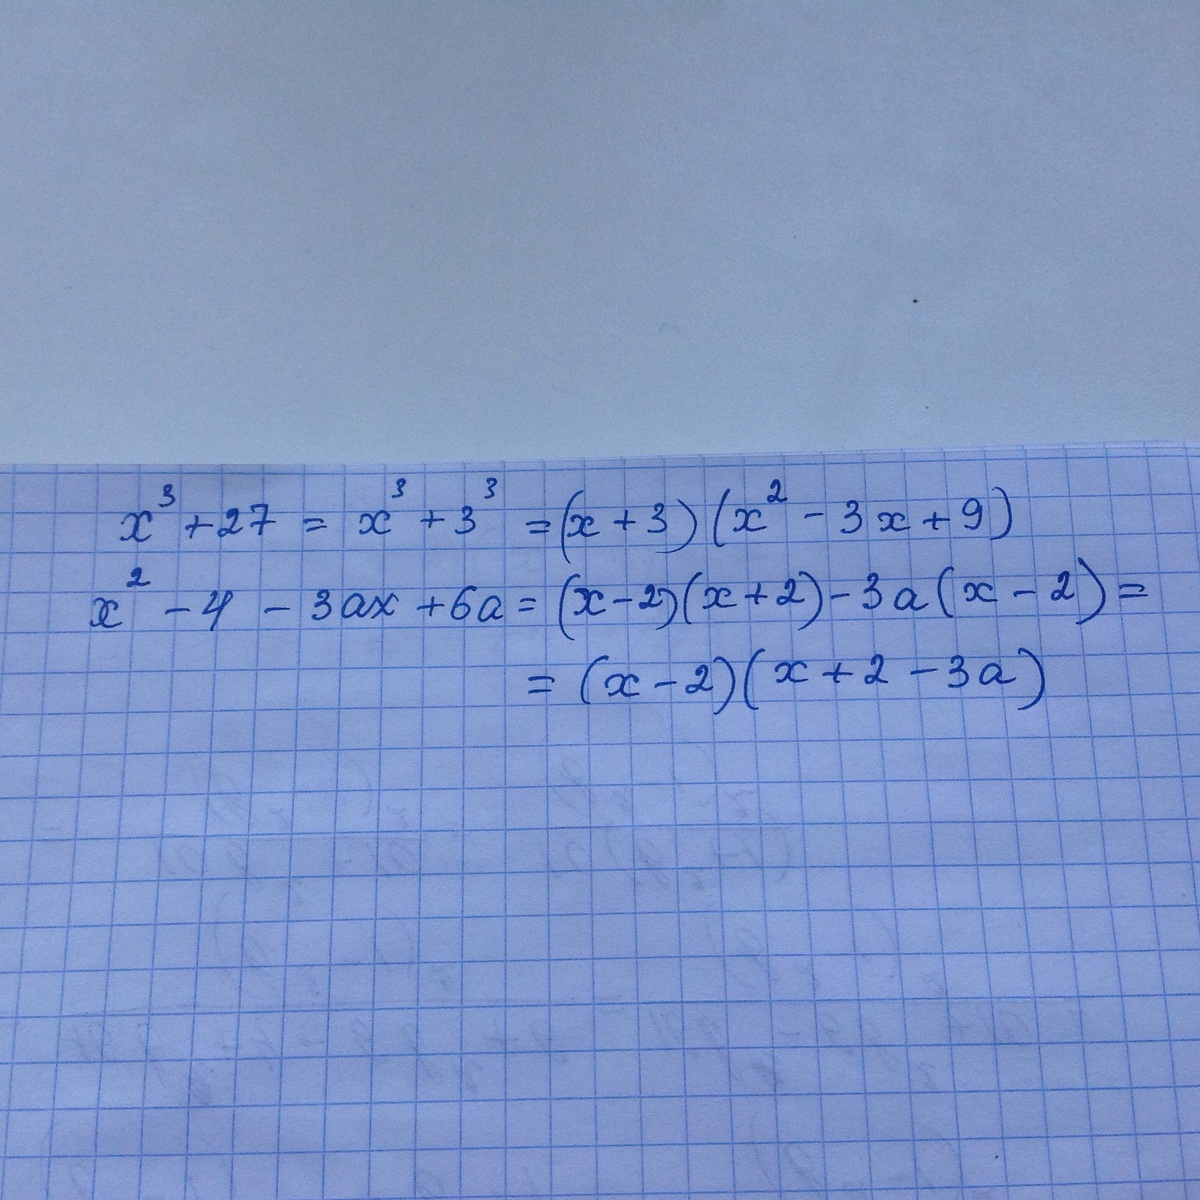 x³ + 27 = x³ + 3³ = (x + 3)(x² - 3x + 9)
x² - 4 - 3ax + 6a = (x - 2)(x + 2) - 3a(x - 2) =
= (x - 2)(x + 2 - 3a)